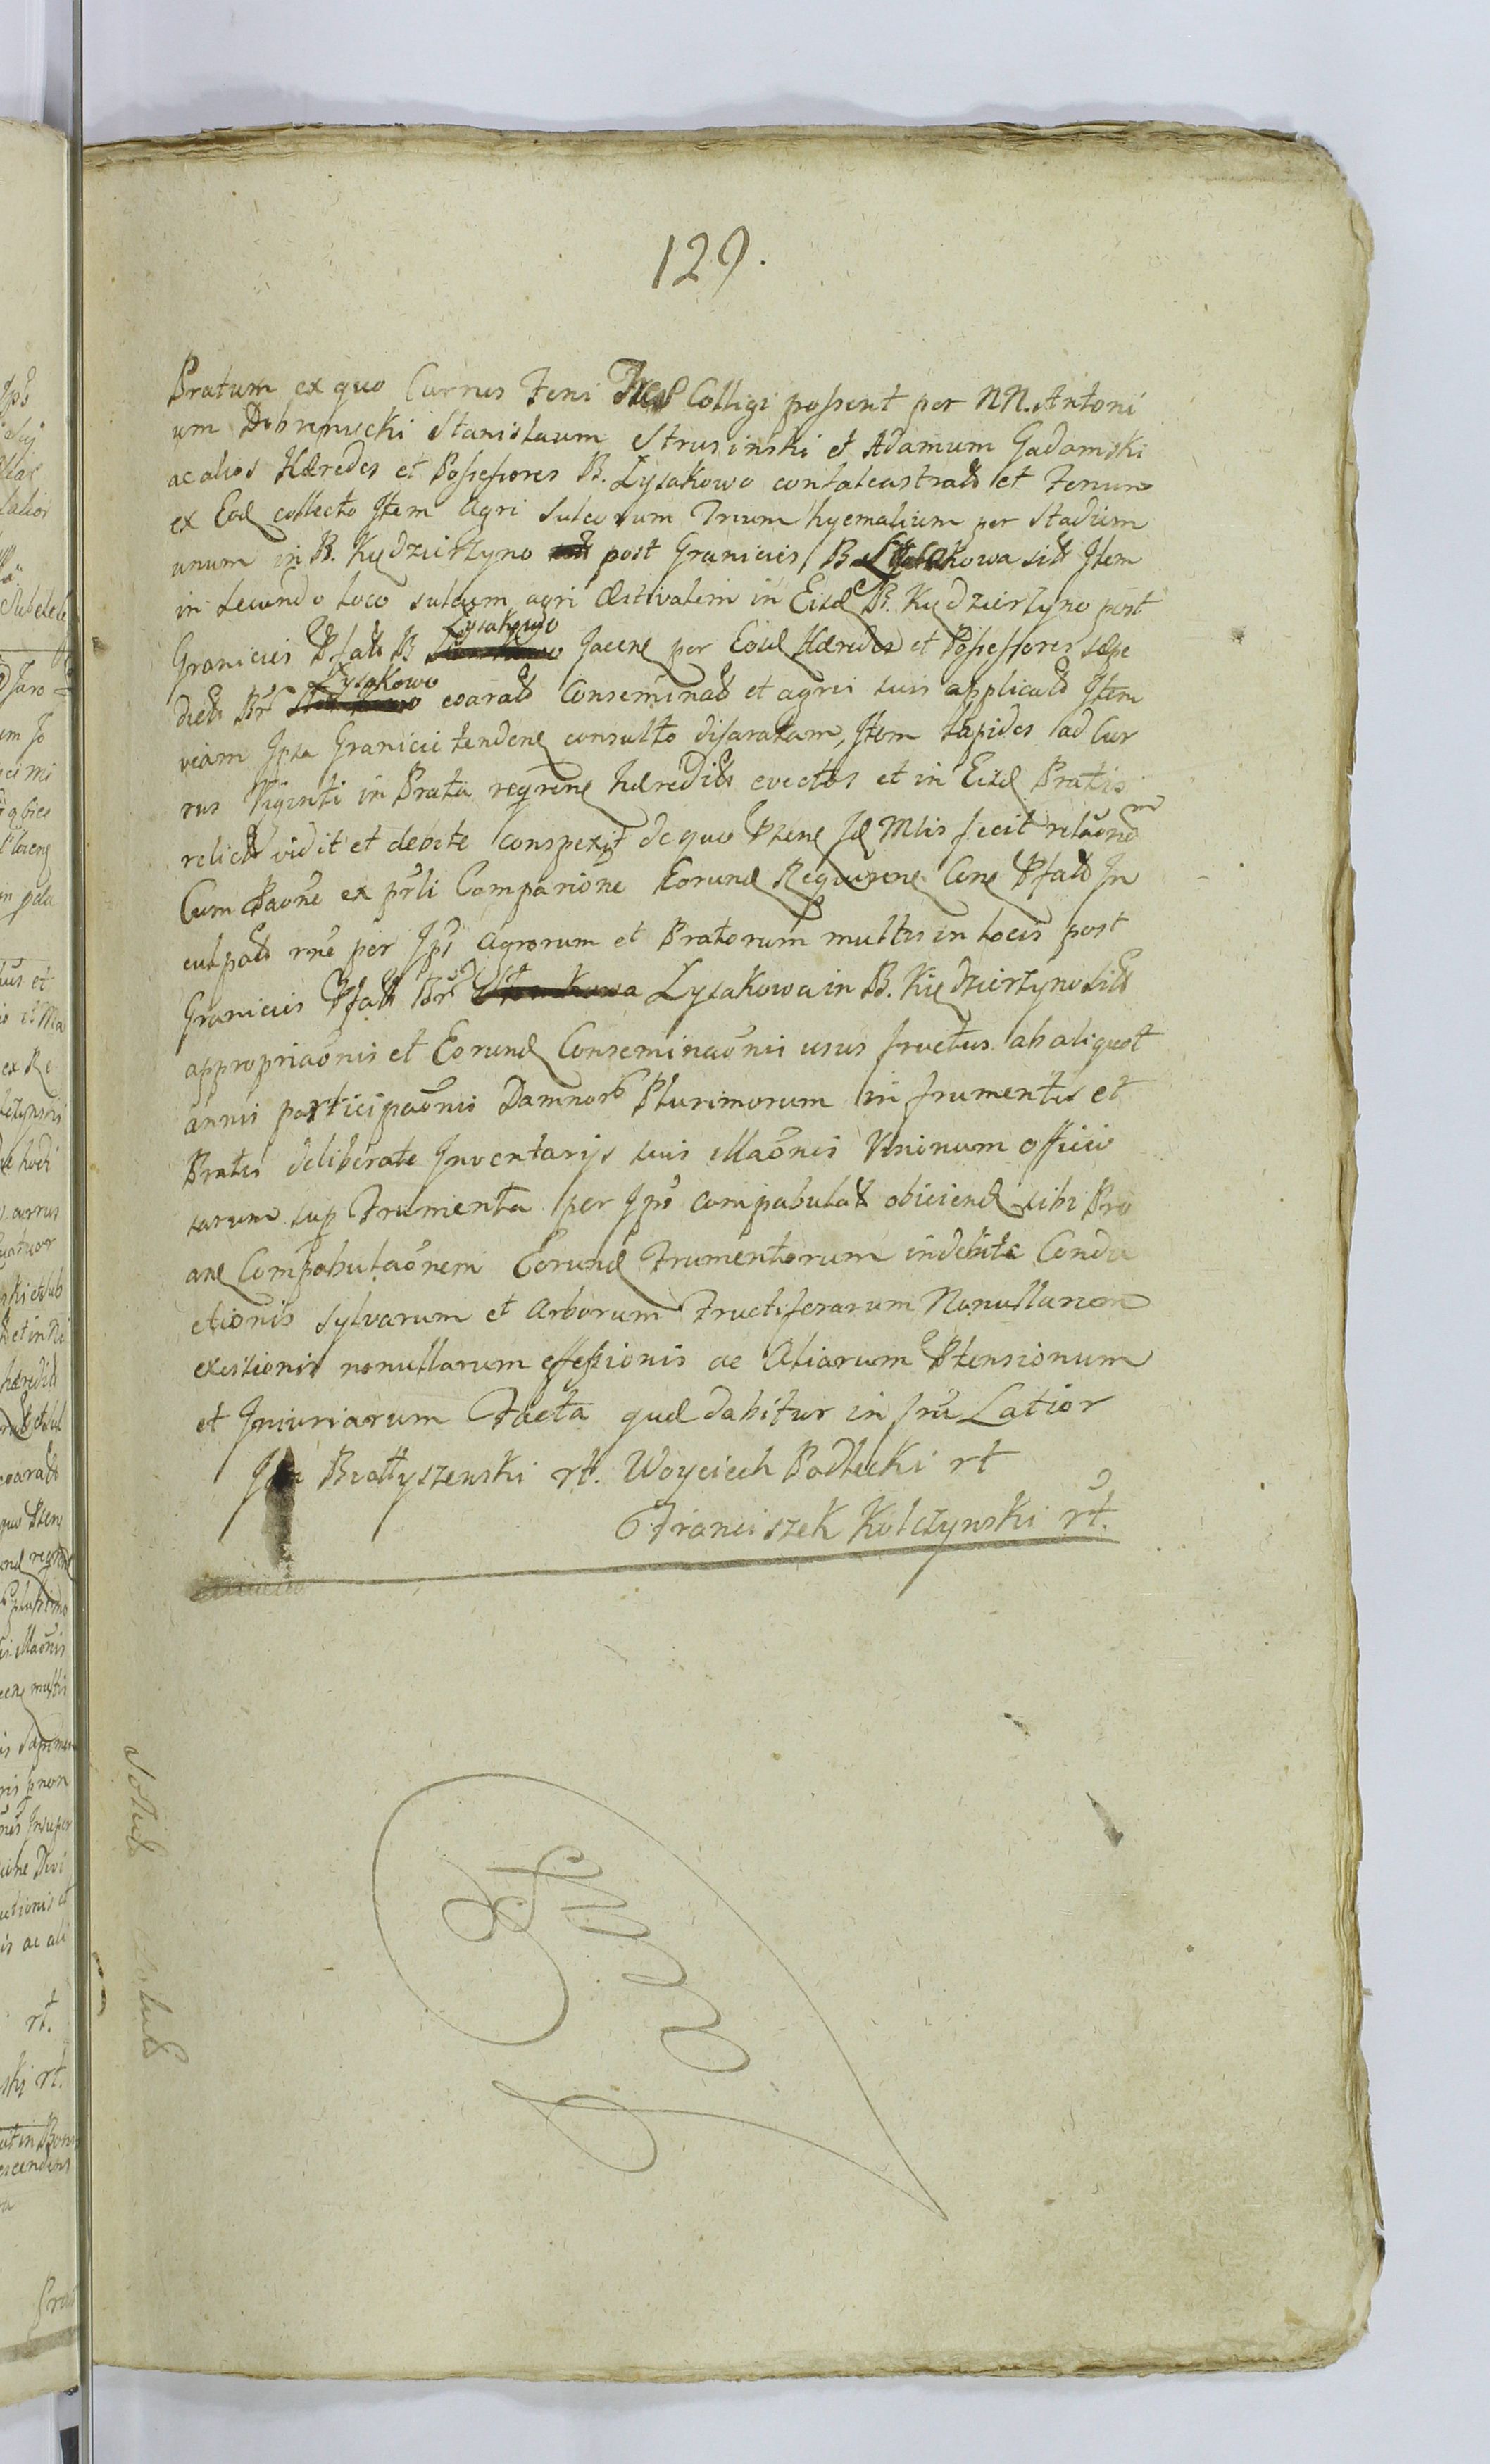 129.
Pratum ex quo Currus Feni Tres Colligi possent per NN. Antoni
um Dobrenucki Stanislaum Strusinski et Adamum Gadamski
ac alios Hæredes et Possessores B. Lysakowo et Fenum
ex Eod collecto Item Agri Sulcorum Trium hyemalium per Stadium
unum in B. Kędzierzyno post Granicies B Lysakowa sitt Item
in Secundo Loco sulcum agri æstivalem in Eisd B. Kędzierzyno post
Granicies Pfatt B Lysakowo Jacen per Eosd Hæredes et Possessores sæpe
dictt Br Lysakowo coaratt Conseminatt et agris suis applicatt Item
viam Ipsa Granicie tenden consulto disaratam, Item Lapides ad Cur
rus Viginti in Prata regren hæreditt evectos et in Eisd Pratis
relictt vidit et debite conspexit de quo Psens Id Mlis fecit relaonem
Cum Paone ex prli Comparione Eorund Requiren Cene Pfatt In
culpatt rne per Ips Agrorum et Pratorum multis in Locis post
Granicies Pfatt Br Lysakowa in B. Kiędzierzyno Sitt
appropriaonis et Eorund Conseminaonis usus fructus ab aliquot
annis participaonis Damnor Plurimorum in frumentis et
Pratis deliberate Inventarijs suis illaonis Visionum officio
sarum sup Frumenta per Ips compabulatt obiiciend sibi Pro
and Compabulaonem Eorund Frumentorum indebite Condu
ctionis Sylvarum et Arborum Fructiferarum Nonullarum
excisionis nonullarum effossionis ac Aliarum Ptensionum
et Iniuriarum Facta qued dabitur in fru Latior
Bratyszewski rt. Woyciech Podlecki rt
Franciszek Kolczynski rt.